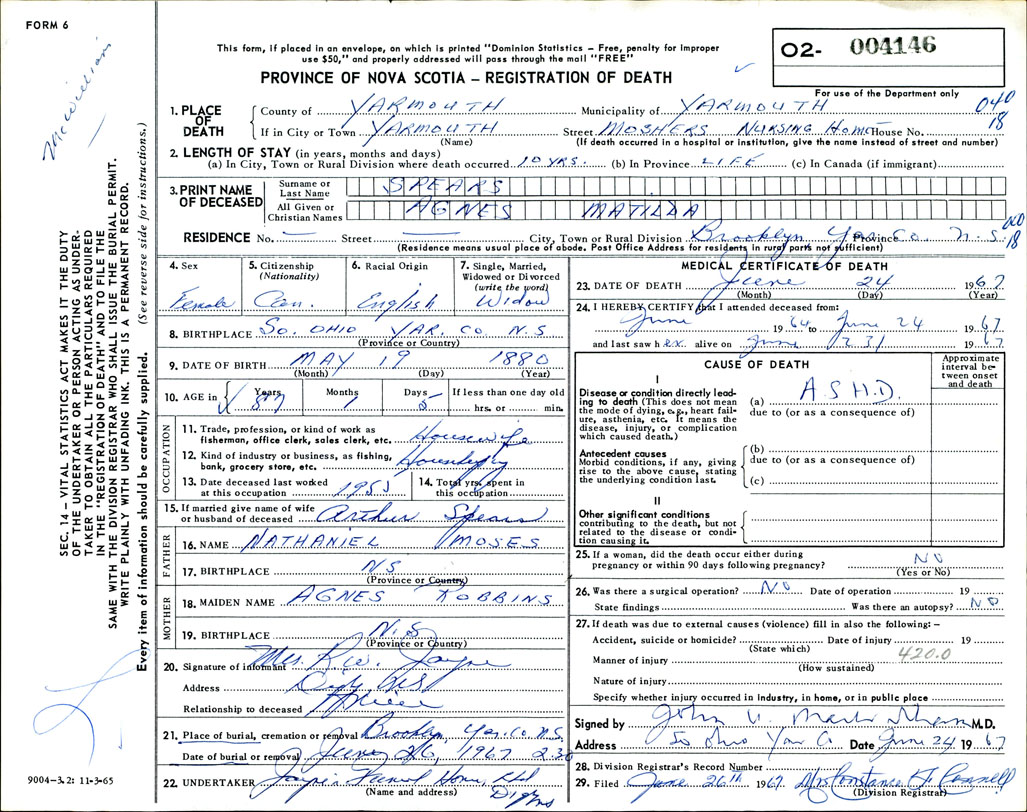 FORM 6
This form, if placed in an envelope, on which is printed "Dominion Statistics – Free, penalty for improper
use $50," and properly addressed will pass through the mail "FREE"
PROVINCE OF NOVA SCOTIA – REGISTRATION OF DEATH
O2- 004146
For use of the Department only
040
18
McWilliam
SEC. 14 – VITAL STATISTICS ACT MAKES IT THE DUTY
OF THE UNDERTAKER OR PERSON ACTING AS UNDER-
TAKER TO OBTAIN ALL THE PARTICULARS REQUIRED
IN THE "REGISTRATION OF DEATH", AND TO FILE THE
SAME WITH THE DIVISION REGISTRAR WHO SHALL ISSUE THE BURIAL PERMIT.
WRITE PLAINLY WITH UNFADING INK. THIS IS A PERMANENT RECORD.
Every item of information should be carefully supplied. (See reverse side for instructions.)
1. PLACE OF DEATH
County of YARMOUTH Municipality of YARMOUTH
If in City or Town YARMOUTH Street MOSHERS NURSING HOME House No.
(Name) (If death occurred in a hospital or institution, give the name instead of street and number)
2. LENGTH OF STAY (in years, months and days)
(a) In City, Town or Rural Division where death occurred 10 YRS. (b) In Province LIFE (c) In Canada (if immigrant)
3. PRINT NAME OF DECEASED
Surname or Last Name SPEARS
All Given or Christian Names AGNES MATILDA
RESIDENCE No. — Street — City, Town or Rural Division Brooklyn Yar. Co. Province N.S.
18
(Residence means usual place of abode. Post Office Address for residents in rural parts not sufficient)
4. Sex
Female
5. Citizenship (Nationality)
Can.
6. Racial Origin
English
7. Single, Married, Widowed or Divorced (write the word)
Widow
8. BIRTHPLACE So. OHIO YAR. CO. N.S
(Province or Country)
9. DATE OF BIRTH MAY 19 1880
(Month) (Day) (Year)
10. AGE in Years 87 Months 1 Days 5 If less than one day old
hrs. or min.
OCCUPATION
11. Trade, profession, or kind of work as
fisherman, office clerk, sales clerk, etc. Housewife
12. Kind of industry or business, as fishing,
bank, grocery store, etc.
13. Date deceased last worked
at this occupation
14. Total yrs. spent in
this occupation
15. If married give name of wife
or husband of deceased Arthur Spears
FATHER
16. NAME NATHANIEL MOSES
17. BIRTHPLACE NS
(Province or Country)
MOTHER
18. MAIDEN NAME AGNES ROBBINS
19. BIRTHPLACE N.S
(Province or Country)
20. Signature of informant Mrs. R.W.
Address
Relationship to deceased
21. Place of burial, cremation or removal Brooklyn, Yar. Co. N.S.
Date of burial or removal June 26, 1967 2.30
22. UNDERTAKER Funeral Home, Ltd
(Name and address)
MEDICAL CERTIFICATE OF DEATH
23. DATE OF DEATH June 24 1967
(Month) (Day) (Year)
24. I HEREBY CERTIFY that I attended deceased from:
June 1964 to June 24 1967
and last saw her alive on June 1967
CAUSE OF DEATH
Approximate interval between onset and death
I
Disease or condition directly lead-
ing to death (This does not mean
the mode of dying, e.g., heart fail-
ure, asthenia, etc. It means the
disease, injury, or complication
which caused death.)
(a) A.S.H.D.
due to (or as a consequence of)
Antecedent causes
Morbid conditions, if any, giving
rise to the above cause, stating
the underlying condition last.
(b)
due to (or as a consequence of)
(c)
II
Other significant conditions
contributing to the death, but not
related to the disease or condi-
tion causing it.
25. If a woman, did the death occur either during
pregnancy or within 90 days following pregnancy? NO
(Yes or No)
26. Was there a surgical operation? NO Date of operation 19
State findings Was there an autopsy? NO
27. If death was due to external causes (violence) fill in also the following: –
Accident, suicide or homicide? Date of injury 19
(State which) 420.0
Manner of injury
(How sustained)
Nature of injury
Specify whether injury occurred in industry, in home, or in public place
Signed by John M.D.
Address So Ohio Yar Co Date June 24 1967
28. Division Registrar's Record Number
29. Filed June 26th 1967 Mrs Constance F. Connell
(Division Registrar)
9004–3.2: 11-3-65